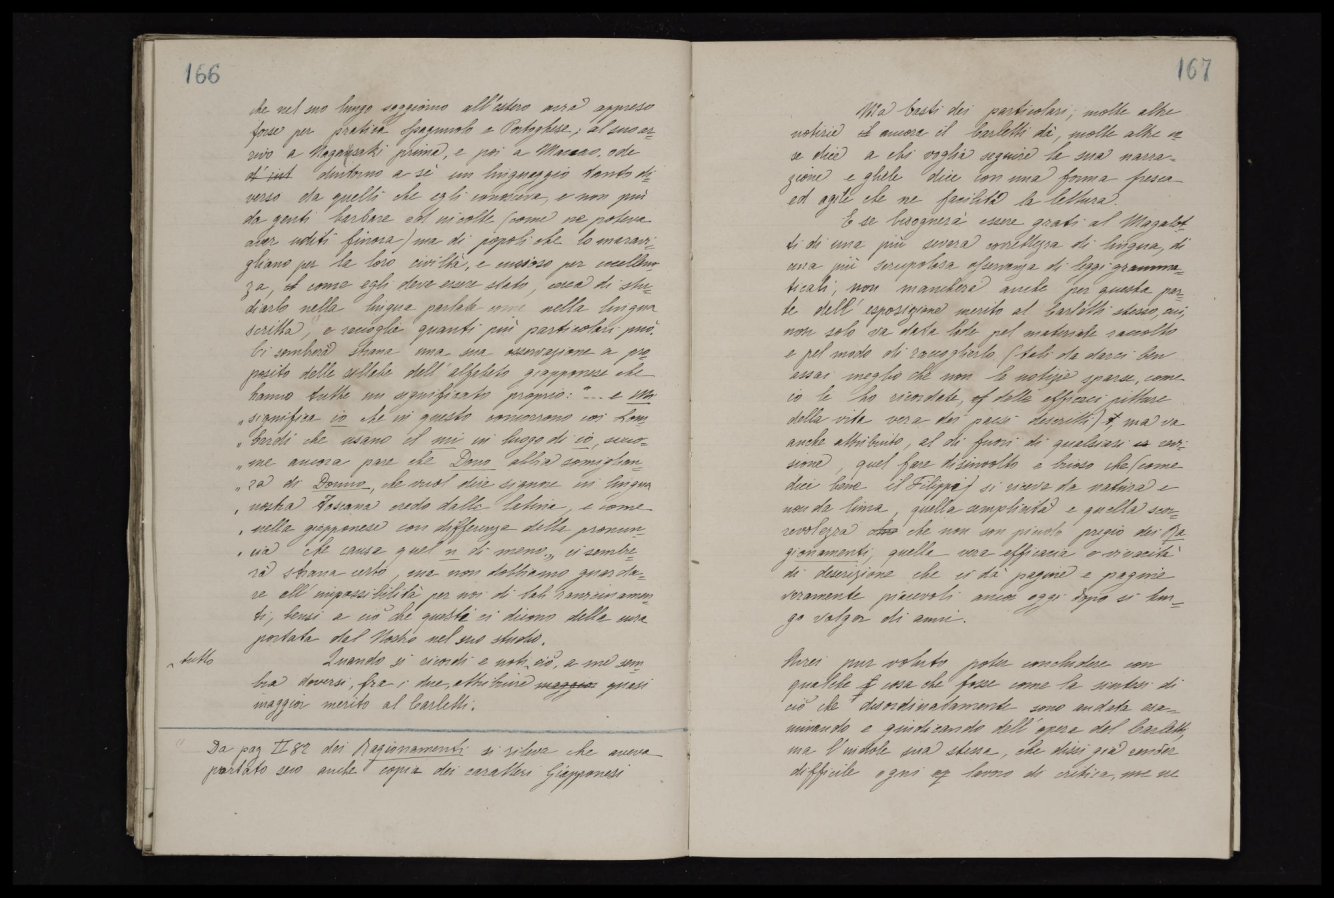 166
che nel suo lungo soggiorno all'estero avrà appreso
forse per pratica Spagnuolo e Portoghese; al suo ar=
rivo a Nagansaki prima, e poi a Macao, ode
dintorno a sè un linguaggio tanto di=
verso da quelli che egli conosceva, e non più
da genti barbare ed incolte (come ne poteva
aver uditi finora) ma di popoli che lo maravi=
gliano per la loro civiltà, e curioso per eccellen=
za, come egli deve essere stato, cerca di stu=
diarlo nella lingua parlata nella lingua
scritta, e raccoglie quanti più particolari può.
Ci sembrerà strana una sua osservazione a pro
posito delle sillabe dell'alfabeto giapponese che
hanno tutte un significato proprio: "... e Mi
" significa io che in questo concorrono coi Lom=
" bardi che usano il mi in luogo di io, sicco=
" me ancora pare che Dono abbia somiglian=
" za di Donno, che vuol dire signore in lingua
" nostra Toscana credo dalla latina, e come
" nella giapponese con differenza della pronun=
" cia che causa quel n di meno", ci sembre=
rà strana certo, ma non dobbiamo guarda=
re all'impossibilità per noi di tali ravvicinamen
ti, bensì a ciò che questi ci dicono della cura
portata dal Nostro nel suo studio.
^ tutto Quando si ricordi e noti ^ ciò, a me sem=
bra doversi, fra i due, attribuire maggior quasi
maggior merito al Carletti.
Da pag II 82 dei Ragionamenti si rileva che aveva
portato seco anche copia dei caratteri Giapponesi
167
Ma basti dei particolari; molte altre
notizie ancora il Carletti dà, molte altre co
se dice a chi voglia seguire la sua narra=
zione e gliele dice con una forma fresca
ed agile che ne facilita la lettura.
E se bisognerà essere grati al Magalot=
ti di una più severa correttezza di lingua, di
una più scrupolosa osservanza di leggi gramma=
ticali, non mancherà anche per questa par=
te dell'esposizione merito al Carletti stesso, cui
non solo va data lode pel materiale raccolto
e pel modo di raccoglierlo (tali da darci ben
assai meglio che non le notizie sparse, come
io le ho ricordate, delle efficaci pitture
della vita vera dei paesi descritti), ma va
anche attribuito, al di fuori di qualsiasi revi=
sione, quel fare disinvolto e brioso che (come
dice bene il Filippi) si riceve da natura e
non da lima, quella semplicità e quella scor=
revolezza che non son piccolo pregio dei Ra
gionamenti, quella vera efficacia e vivacità
di descrizione che ci dà pagine e pagine
veramente piacevoli ancor oggi dopo sì lun=
go volger di anni.
Avrei pur voluto poter concludere con
qualche cosa che fosse come la sintesi di
ciò che disordinatamente sono andata esa=
minando e giudicando dell'opera del Carletti,
ma l'indole sua stessa, che dissi già render
difficile ogni lavoro di critica, me ne